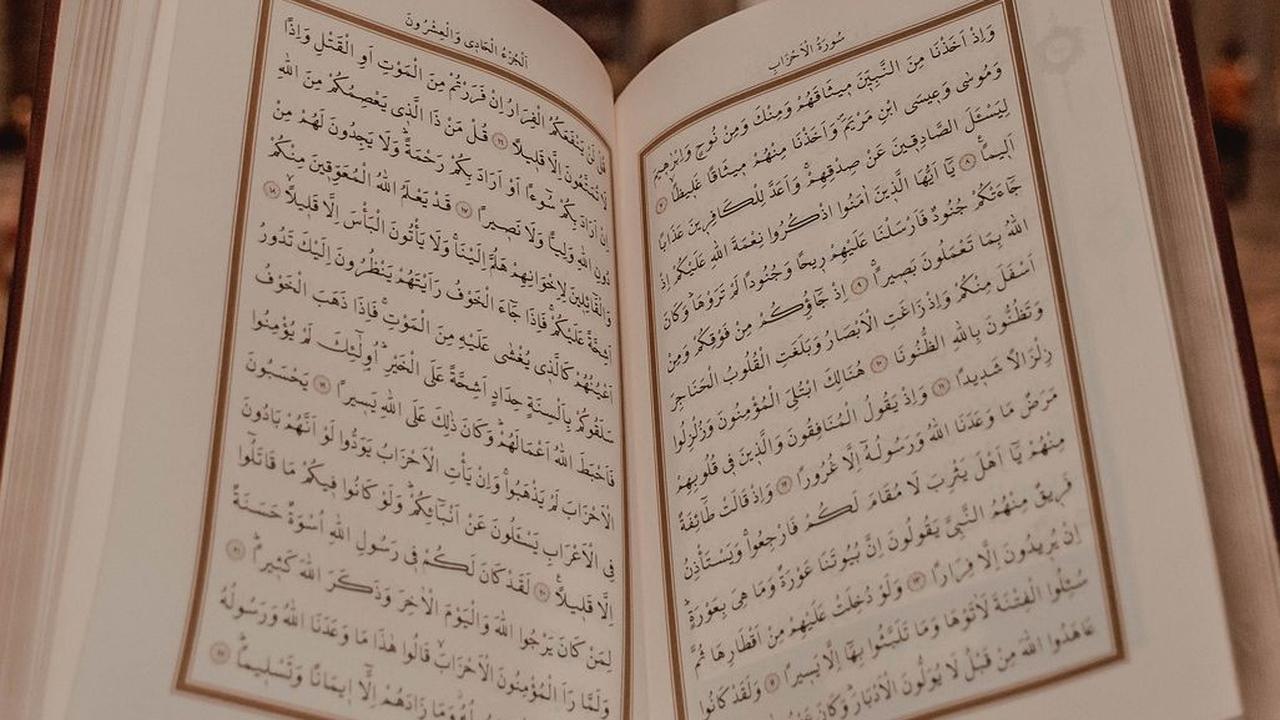 سُورَةُ الْاَحْزَابِ
وَاِذْ اَخَذْنَا مِنَ النَّبِيّٖنَ مٖيثَاقَهُمْ وَمِنْكَ وَمِنْ نُوحٍ وَاِبْرٰهٖيمَ
وَمُوسٰى وَعٖيسَى ابْنِ مَرْيَمَۖ وَاَخَذْنَا مِنْهُمْ مٖيثَاقًا غَلٖيظًاۙ ﴿٧﴾
لِيَسْـَٔلَ الصَّادِقٖينَ عَنْ صِدْقِهِمْۚ وَاَعَدَّ لِلْكَافِرٖينَ عَذَابًا
اَلٖيمًاࣖ ﴿٨﴾ يَٓا اَيُّهَا الَّذٖينَ اٰمَنُوا اذْكُرُوا نِعْمَةَ اللّٰهِ عَلَيْكُمْ اِذْ
جَٓاءَتْكُمْ جُنُودٌ فَاَرْسَلْنَا عَلَيْهِمْ رٖيحًا وَجُنُودًا لَمْ تَرَوْهَاۜ وَكَانَ
اللّٰهُ بِمَا تَعْمَلُونَ بَصٖيرًاۚ ﴿٩﴾ اِذْ جَٓاؤُ۫كُمْ مِنْ فَوْقِكُمْ وَمِنْ
اَسْفَلَ مِنْكُمْ وَاِذْ زَاغَتِ الْاَبْصَارُ وَبَلَغَتِ الْقُلُوبُ الْحَنَاجِرَ
وَتَظُنُّونَ بِاللّٰهِ الظُّنُونَا ﴿١٠﴾ هُنَالِكَ ابْتُلِيَ الْمُؤْمِنُونَ وَزُلْزِلُوا
زِلْزَالًا شَدٖيدًا ﴿١١﴾ وَاِذْ يَقُولُ الْمُنَافِقُونَ وَالَّذٖينَ فٖى قُلُوبِهِمْ
مَرَضٌ مَا وَعَدَنَا اللّٰهُ وَرَسُولُهُٓ اِلَّا غُرُورًا ﴿١٢﴾ وَاِذْ قَالَتْ طَٓائِفَةٌ
مِنْهُمْ يَٓا اَهْلَ يَثْرِبَ لَا مُقَامَ لَكُمْ فَارْجِعُواۚ وَيَسْتَأْذِنُ
فَرٖيقٌ مِنْهُمُ النَّبِيَّ يَقُولُونَ اِنَّ بُيُوتَنَا عَوْرَةٌ وَمَا هِيَ بِعَوْرَةٍۚ
اِنْ يُرٖيدُونَ اِلَّا فِرَارًا ﴿١٣﴾ وَلَوْ دُخِلَتْ عَلَيْهِمْ مِنْ اَقْطَارِهَا ثُمَّ
سُئِلُوا الْفِتْنَةَ لَاٰتَوْهَا وَمَا تَلَبَّثُوا بِهَٓا اِلَّا يَسٖيرًا ﴿١٤﴾ وَلَقَدْ كَانُوا
عَاهَدُوا اللّٰهَ مِنْ قَبْلُ لَا يُوَلُّونَ الْاَدْبَارَۜ وَكَانَ
اَلْجُزْءُ الْحَادِى وَالْعِشْرُونَ
قُلْ لَنْ يَنْفَعَكُمُ الْفِرَارُ اِنْ فَرَرْتُمْ مِنَ الْمَوْتِ اَوِ الْقَتْلِ وَاِذًا
لَا تُمَتَّعُونَ اِلَّا قَلٖيلًا ﴿١٦﴾ قُلْ مَنْ ذَا الَّذٖى يَعْصِمُكُمْ مِنَ اللّٰهِ
اِنْ اَرَادَ بِكُمْ سُٓوءًا اَوْ اَرَادَ بِكُمْ رَحْمَةًۜ وَلَا يَجِدُونَ لَهُمْ مِنْ
دُونِ اللّٰهِ وَلِيًّا وَلَا نَصٖيرًا ﴿١٧﴾ قَدْ يَعْلَمُ اللّٰهُ الْمُعَوِّقٖينَ مِنْكُمْ
وَالْقَٓائِلٖينَ لِاِخْوَانِهِمْ هَلُمَّ اِلَيْنَاۚ وَلَا يَأْتُونَ الْبَأْسَ اِلَّا قَلٖيلًاۙ ﴿١٨﴾
اَشِحَّةً عَلَيْكُمْۚ فَاِذَا جَٓاءَ الْخَوْفُ رَاَيْتَهُمْ يَنْظُرُونَ اِلَيْكَ تَدُورُ
اَعْيُنُهُمْ كَالَّذٖى يُغْشٰى عَلَيْهِ مِنَ الْمَوْتِۚ فَاِذَا ذَهَبَ الْخَوْفُ
سَلَقُوكُمْ بِاَلْسِنَةٍ حِدَادٍ اَشِحَّةً عَلَى الْخَيْرِۜ اُو۬لٰٓئِكَ لَمْ يُؤْمِنُوا
فَاَحْبَطَ اللّٰهُ اَعْمَالَهُمْۜ وَكَانَ ذٰلِكَ عَلَى اللّٰهِ يَسٖيرًا ﴿١٩﴾ يَحْسَبُونَ
الْاَحْزَابَ لَمْ يَذْهَبُواۚ وَاِنْ يَأْتِ الْاَحْزَابُ يَوَدُّوا لَوْ اَنَّهُمْ بَادُونَ
فِى الْاَعْرَابِ يَسْـَٔلُونَ عَنْ اَنْبَٓائِكُمْۜ وَلَوْ كَانُوا فٖيكُمْ مَا قَاتَلُٓوا
اِلَّا قَلٖيلًاࣖ ﴿٢٠﴾ لَقَدْ كَانَ لَكُمْ فٖى رَسُولِ اللّٰهِ اُسْوَةٌ حَسَنَةٌ
لِمَنْ كَانَ يَرْجُوا اللّٰهَ وَالْيَوْمَ الْاٰخِرَ وَذَكَرَ اللّٰهَ كَثٖيرًاۜ ﴿٢١﴾
وَلَمَّا رَاَ الْمُؤْمِنُونَ الْاَحْزَابَۙ قَالُوا هٰذَا مَا وَعَدَنَا اللّٰهُ وَرَسُولُهُ
وَمَا زَادَهُمْ اِلَّٓا اٖيمَانًا وَتَسْلٖيمًاۜ ﴿٢٢﴾